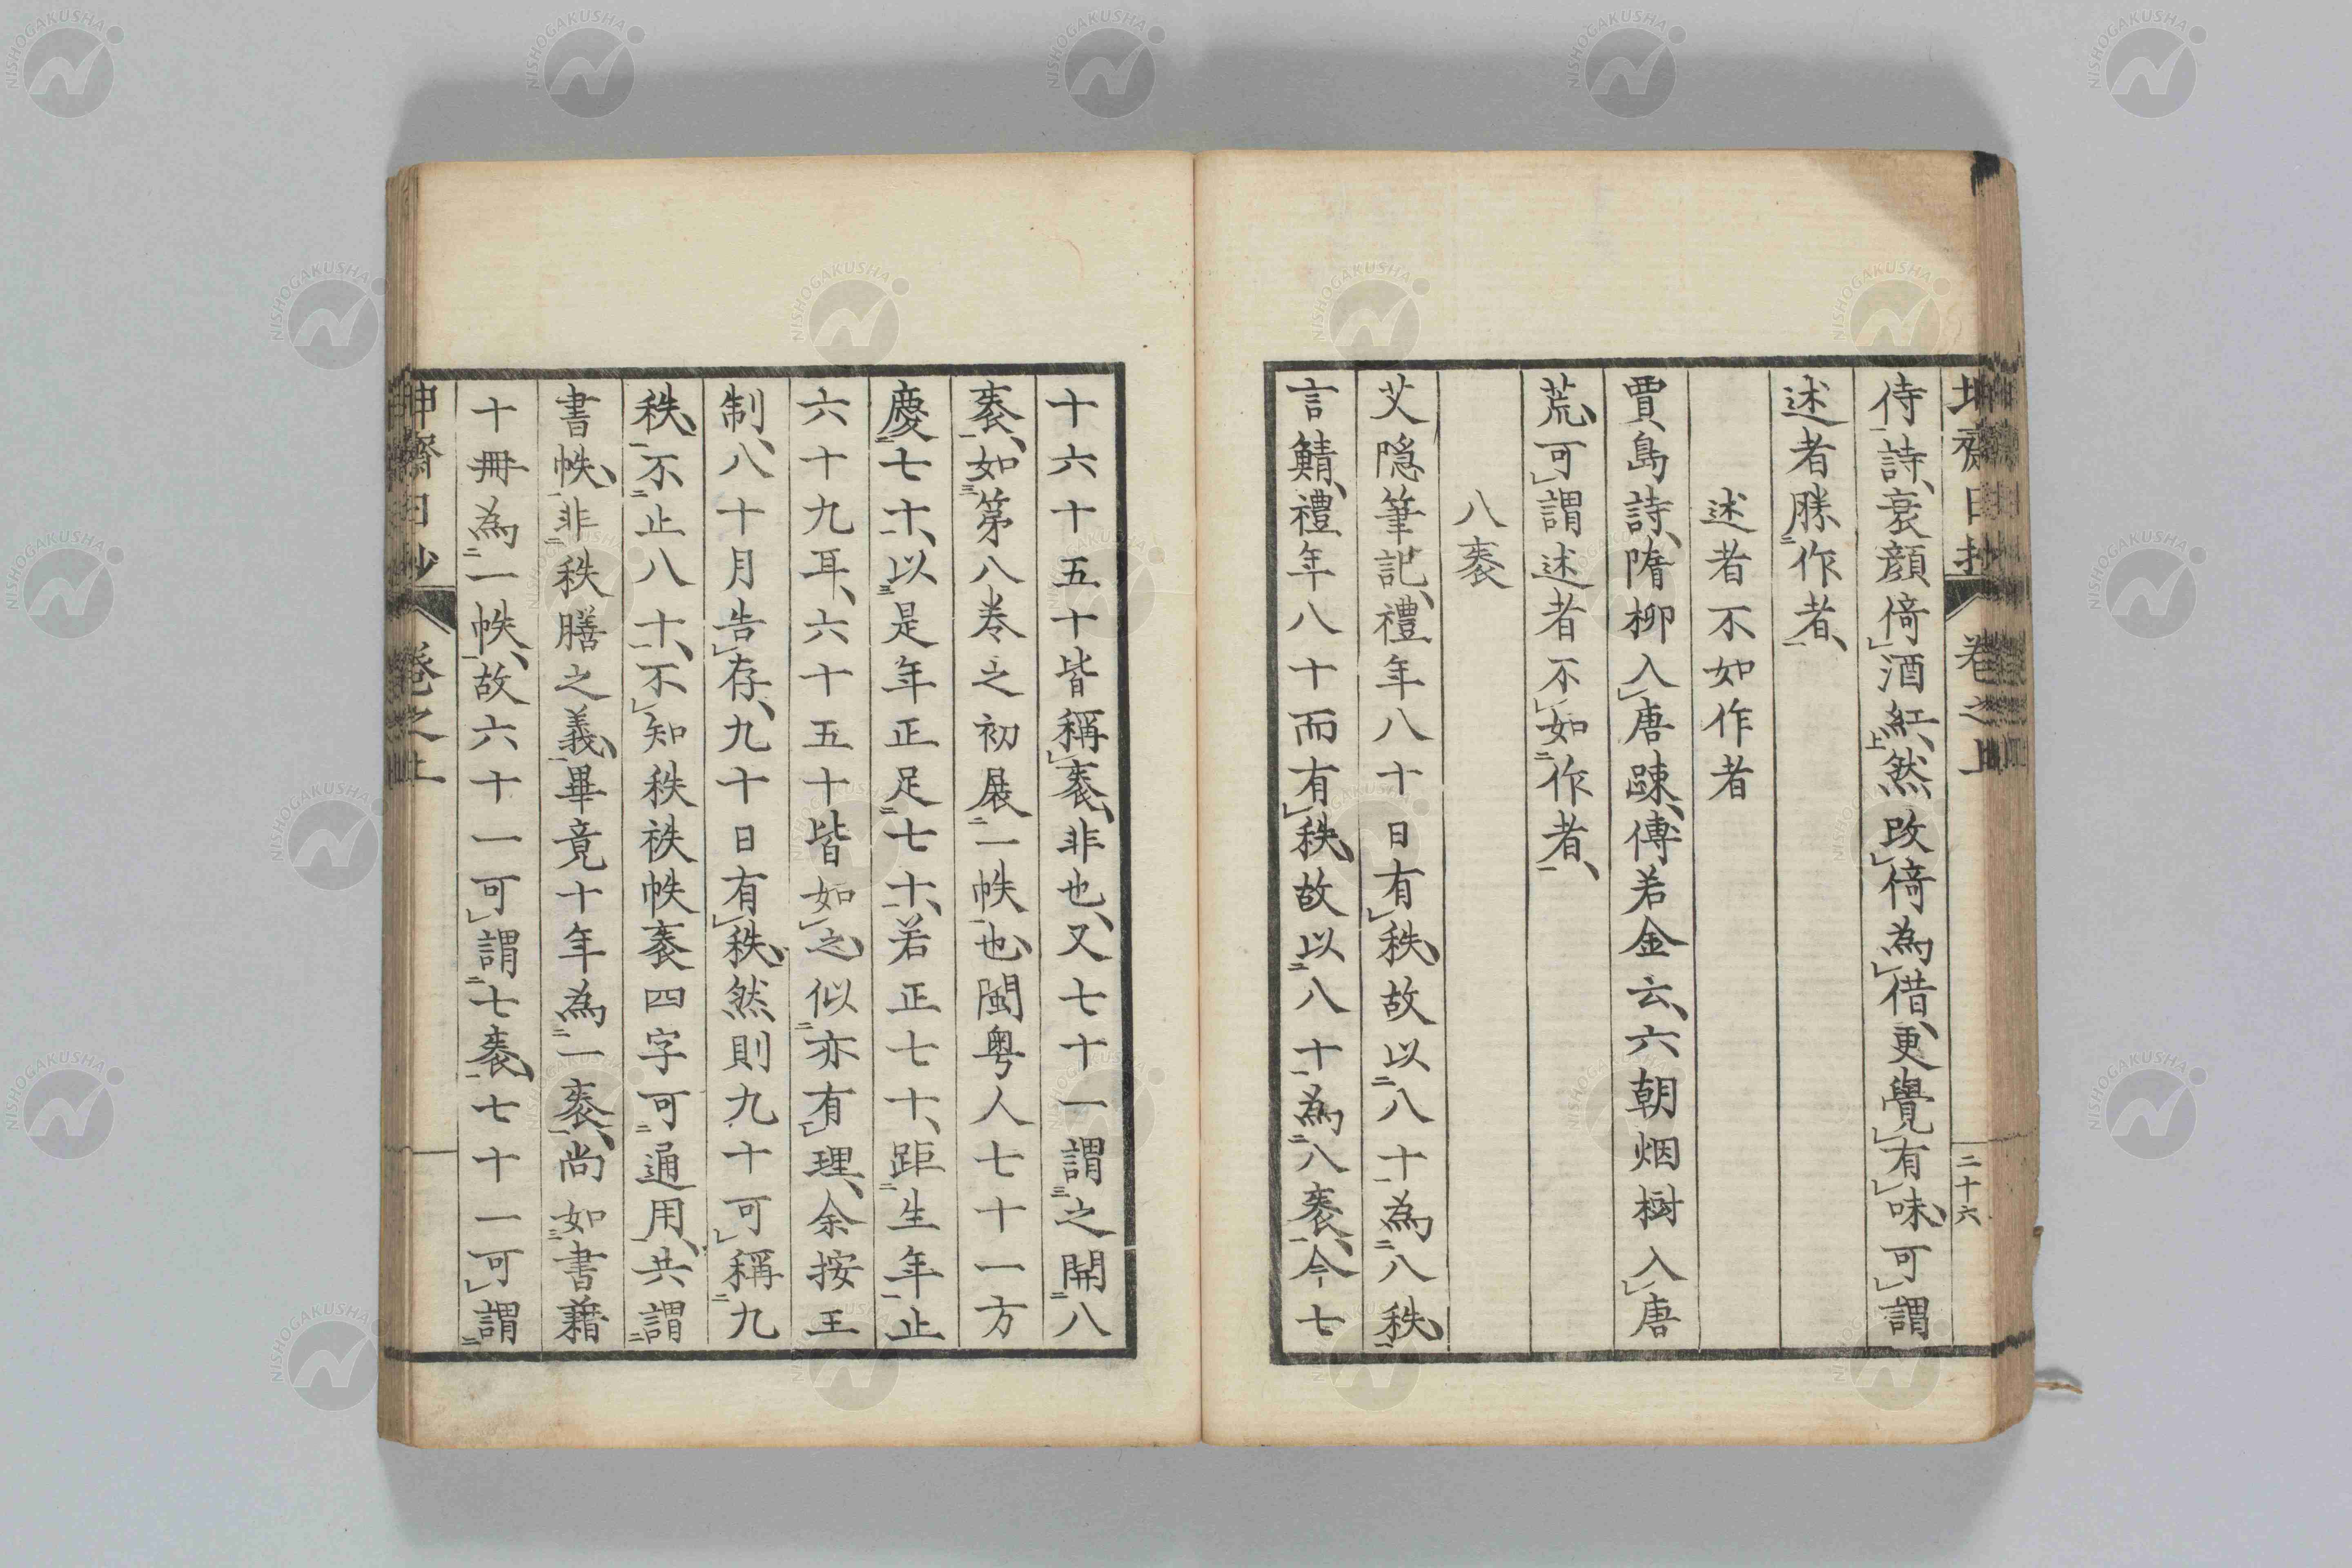 侍詩、衰顔倚酒紅、然改倚為借、更覺有味、可謂
述者勝作者、
述者不如作者
賈島詩、隋柳入唐踈、傅若金云、六朝烟樹入唐
荒、可謂述者不如作者、
八袠
艾隠筆記、禮年八十日有秩、故以八十為八秩、
言鯖、禮年八十而有秩、故以八十為八袠、今七
卷之上
二十六
十六十五十皆稱袠、非也、又七十一謂之開八
袠、如第八巻之初展一帙也、閩粤人七十一方
慶七十、以是年正足七十、若正七十、距生年止
六十九耳、六十五十皆如之、似亦有理、余按王
制、八十月告存、九十日有秩、然則九十可稱九
秩、不止八十、不知秩袟帙袠四字可通用、共謂
書帙、非秩膳之義、畢竟十年為一袠、尚如書籍
十冊為一帙、故六十一可謂七袠、七十一可謂
卷之上
NISHOGAKUSHA